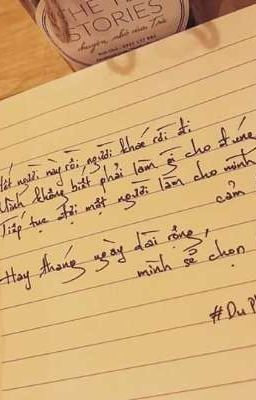 THE TEA
STORIES
chuyện nhỏ của Trà
Hết người này rồi người khác rời đi
Mình không biết phải làm gì cho đúng
Tiếp tục đợi một người làm cho mình
cảm
Hay tháng ngày dài rộng,
mình sẽ chọn
#Du Ph